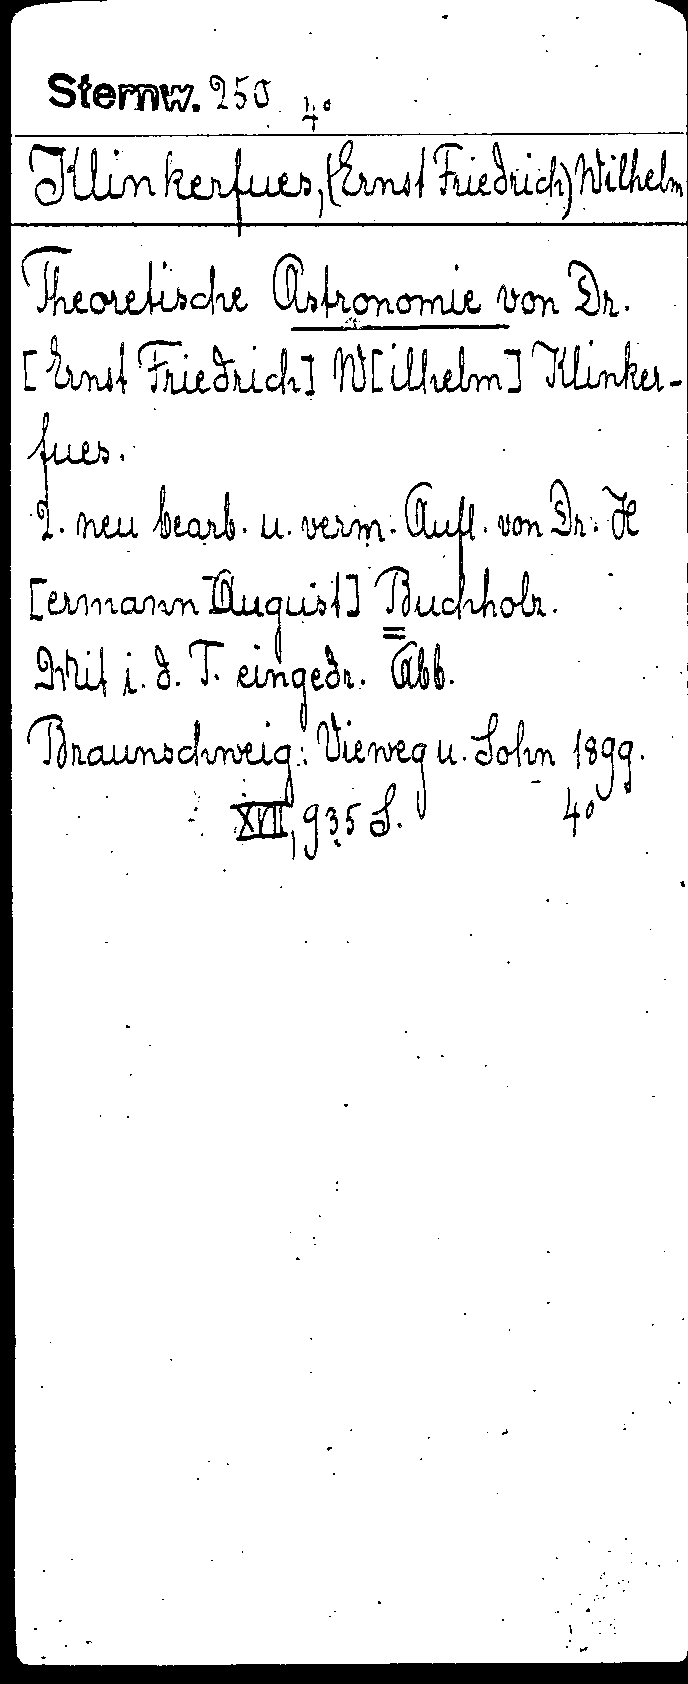 Sternw. 250 4°
Klinkerfues, (Ernst Friedrich) Wilhelm
Theoretische Astronomie von Dr.
[Ernst Friedrich] W[ilhelm] Klinker-
fues.
2. neu bearb. u. verm. Aufl. von Dr. H
[ermann August] Buchholz.
Mit i. d. T. eingedr. Abb.
Braunschweig: Vieweg u. Sohn 1899.
XVII, 935 S. 4°